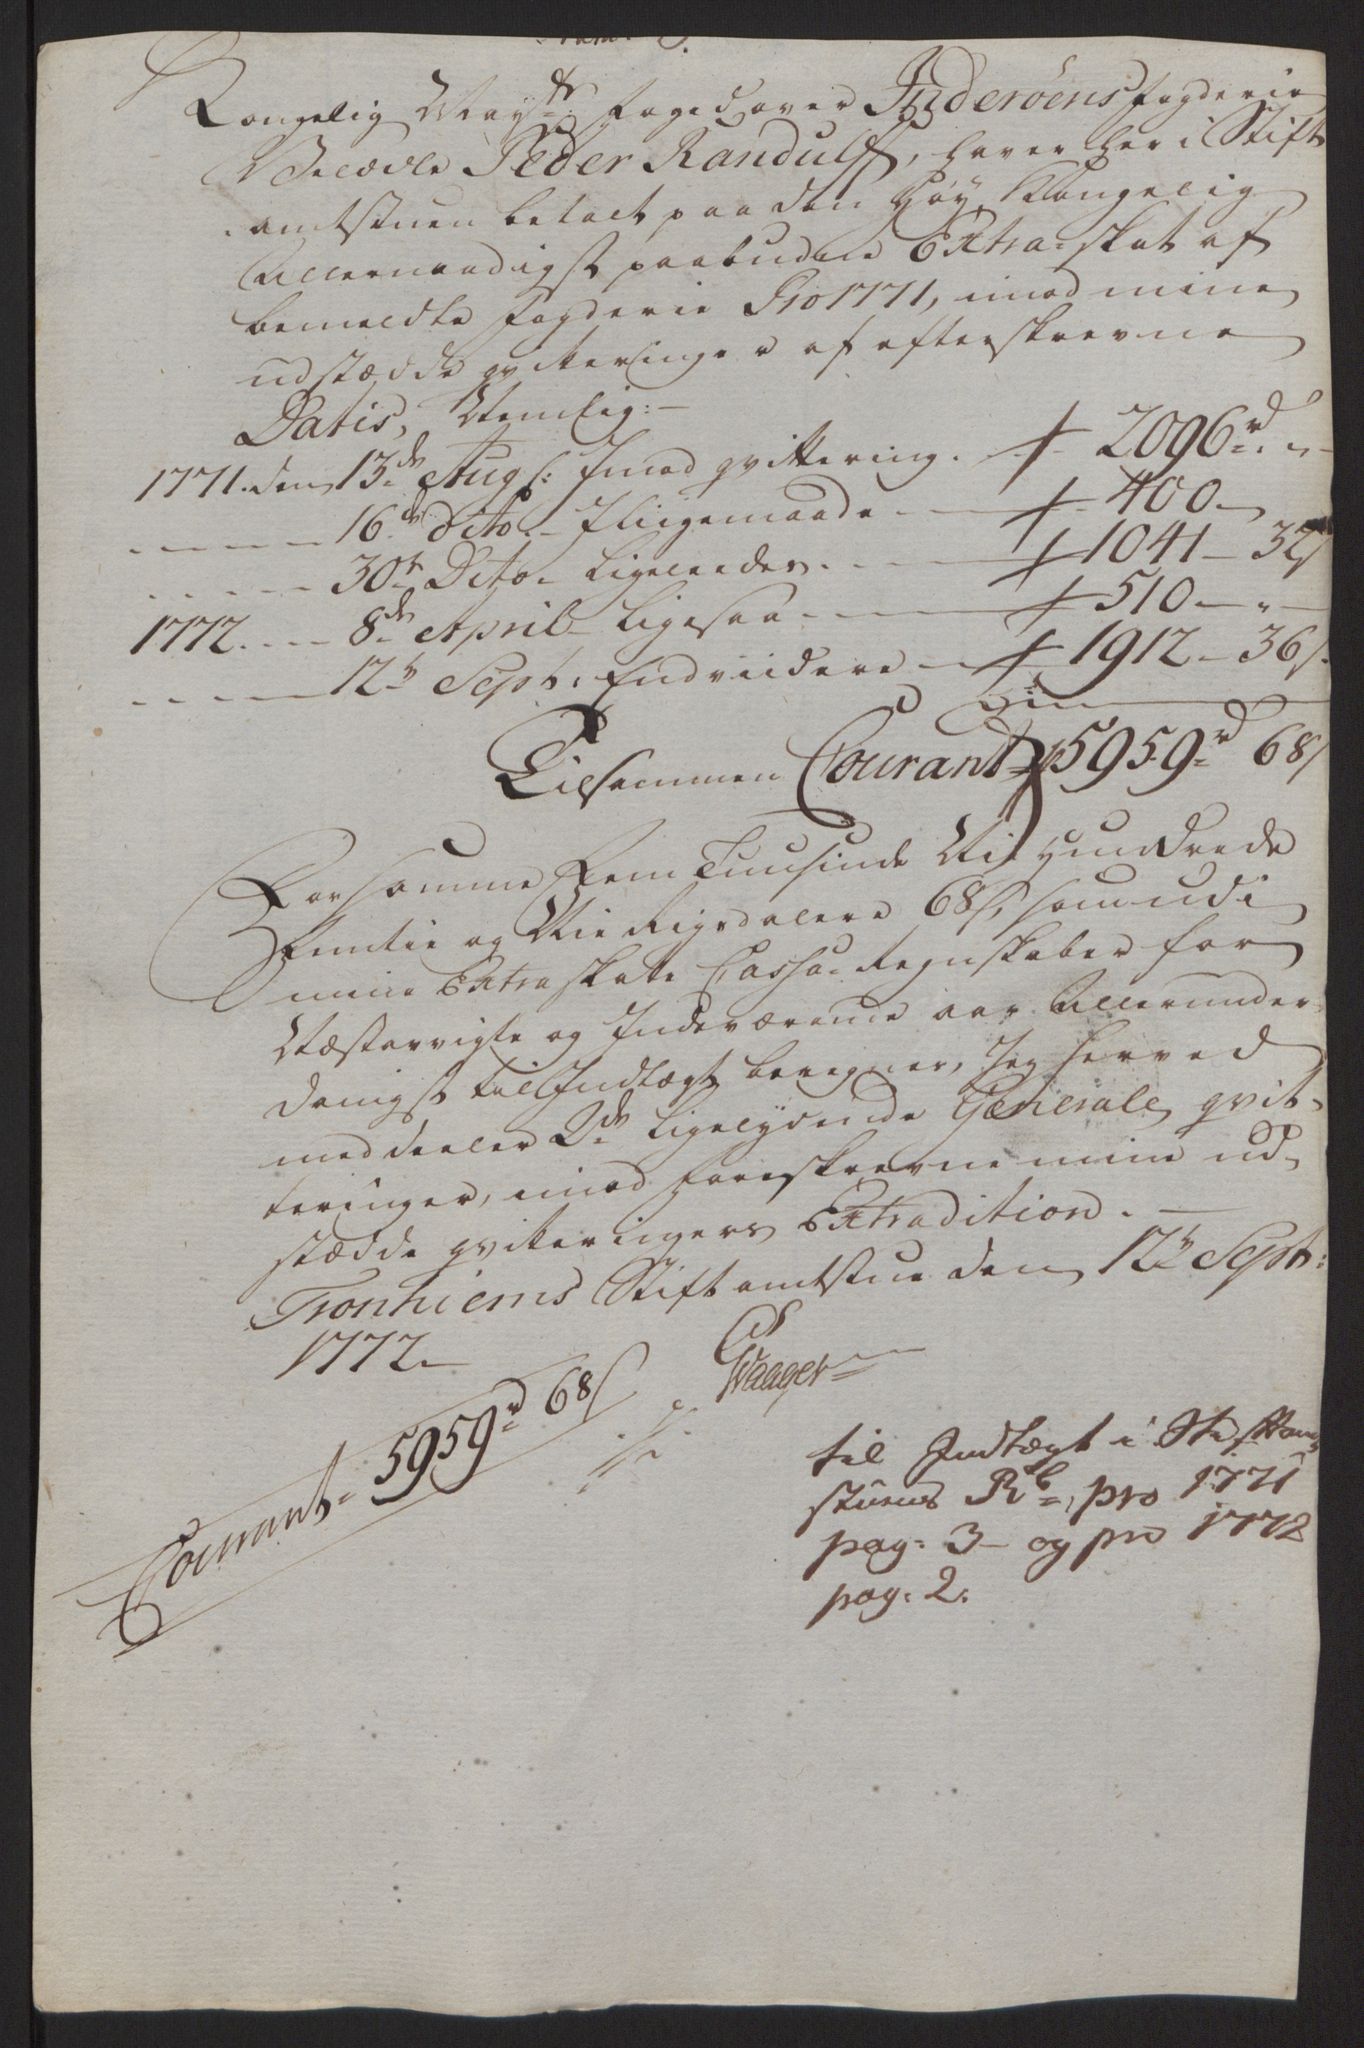 Kongelig May:ts Foged over Inderöens Fogderie
Velædle Peder Randulff, haver her i Stift
amtstuen betalt paa den Høy Kongelig
Allernaadigst paabudne Extra-skat af
bemeldte Fogderie Pro 1771, imod mine
udstædde qvitteringer af efterskrevne
Datis, Nemlig:-
1771. den 13de Aug: Imod qvittering. - 2096rd. " -
16de Dito. - Iligemaade - 400 -
30te Dito. Ligeleedes. - 1041 - 32s
1772. - 8de April - Ligesaa - 510 - " -
12te Sept: Endviidere - 1912 - 36s.
Tilsammen Courant 5959rd 68s
For samme Fem Tuusinde Nie Hundrede
Femtie og Nie Rigsdalere 68s, som udi
mine Extraskatte Cassa-Regnskaber for
Næstavvigte og Indeværende aar Allerunder-
danigst til Indtægt beregnes, Jeg herved
meddeeler 2de Ligelydende Generale qvit-
teringer, imod foreskrevne mine ud-
stædde qvitteringers Extradition. -
Tronhiems Stiftamtstue den 12te Sept:
1772 -
Waager
Courant - 5959rd 68s
til Indtægt i Stiftam-
stuens Rb, pro 1771
pag: 3 - og pro 1772
pag: 2.